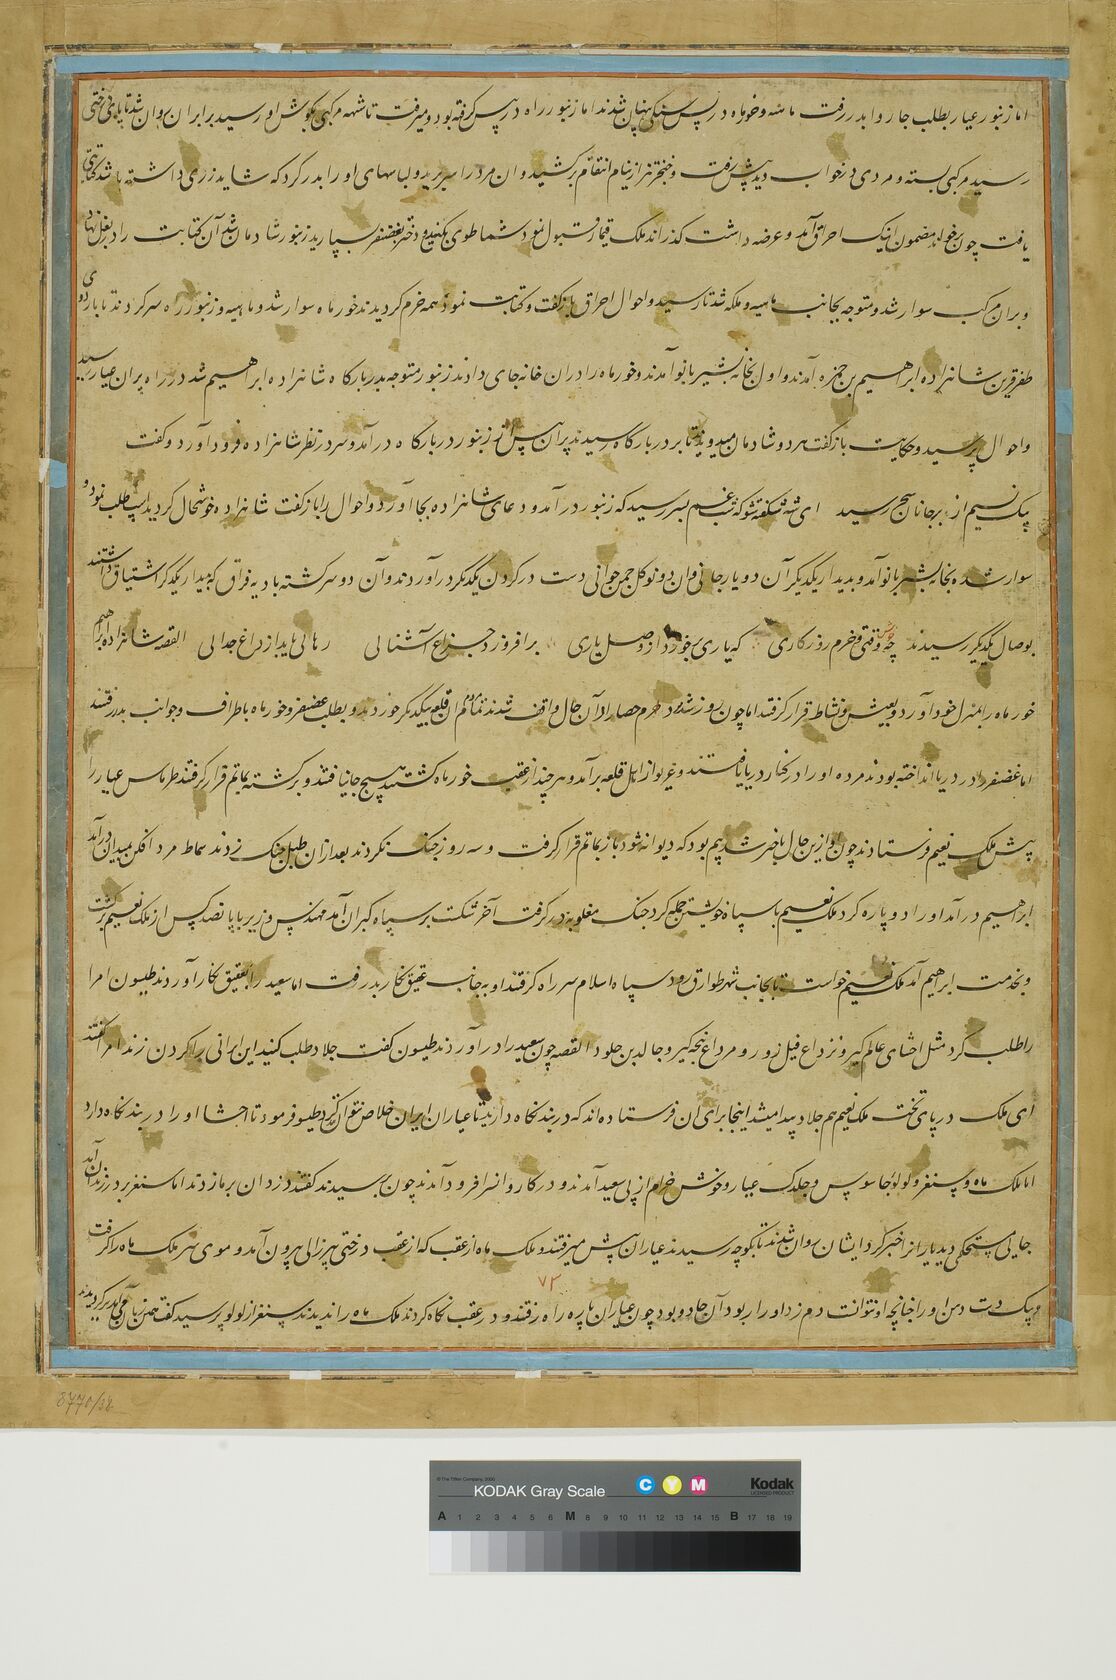 اما زنبور عیار بطلب جاروا بدر رفت ماهیه و خورماه در پس سنگی پنهان شدند اما زنبور راه در پس گرفته بود و میرفت تا شیهه مرکبی بگوش او رسید برابر آن روان شد تا پای درختی
رسید مرکبی بسته و مردی در خواب دید پیش رفت و خنجر تیز از نیام انتقام برکشید و آن مرد را سر برید و لباسهای او را بدر کرد که شاید زری داشته باشد کتابتی
یافت چون برخواند مضمون اینک احراق آمد و عرضه داشت گذراند ملک قیماز قبول نمود شما طوی بکنید و دختر بغضنفر بسپارید زنبور شادمان شد آن کتابت را در بغل نهاد
و بر آن مرکب سوار شد و متوجه بجانب ماهیه و ملکه شد تا رسید و احوال احراق بازگفت و کتابت نمود همه خرم گردیدند خورماه سوار شد و ماهیه و زنبور راه سر کردند تا باردوی
ظفر قرین شاهزاده ابراهیم بن حمزه آمدند و اول بخانه بشیر بانو آمدند و خورماه را در ان خانه جای دادند زنبور متوجه بدر بارگاه شاهزاده ابراهیم شد در راه پران عیار رسید
و احوال پرسید و حکایت بازگفت هر دو شادمان میدویدند تا بر در بارگاه رسیدند پران پس از زنبور در بارگاه درآمد و سر در نظر شاهزاده فرود آورد و گفت
پیک نسیم از بر جانان سحر رسید ای شه شکفته شو که شب غم بسر رسید که زنبور درآمد و دعای شاهزاده بجا آورد و احوال را بازگفت شاهزاده خوشحال گردید اسپ طلب نمود و
سوار شده بخانه بشیر بانو آمد و بدیدار یکدیگر آن دو یار جانی و ان دو نوگل چمن جوانی دست در گردن یکدیگر درآوردند و آن دو سرگشته بادیه فراق که بدیدار یکدیگر اشتیاق داشتند
بوصال یکدیگر رسیدند چه خوش وقتی و خرم روزگاری که یاری برخورد از وصل یاری برافروزد چراغ آشنائی رهائی یابد از داغ جدائی القصه شاهزاده ابراهیم
خورماه را بمنزل خود آورد و بعیش و نشاط قرار گرفتند اما چون روز شد مردم حصار از آن حال واقف شدند تمام مردم آن قلعه بیکدیگر خوردند و بطلب غضنفر و خورماه باطراف و جوانب بدر رفتند
اما غضنفر را در دریا انداخته بودند مرده او را در کنار دریا یافتند و غریو از اهل قلعه برآمد و هر چند از عقب خورماه گشتند هیچ جا نیافتند و برگشته بماتم قرار گرفتند طرماس عیار را
پیش ملک نعیم فرستادند چون او ازین حال باخبر شد بیم بود که دیوانه شود باز بماتم قرار گرفت و سه روز جنگ نکردند بعد از ان طبل جنگ زدند سماط مردافکن بمیدان درآمد
ابراهیم درآمد او را دو پاره کرد ملک نعیم با سپاه خویشتن حمله کرد جنگ مغلوبه در گرفت آخر شکست بر سپاه گبران آمد مهندس وزیر با پانصد کس از ملک نعیم برگشت
و بخدمت ابراهیم آمد ملک نعیم خواست تا بجانب شهر طوارق رود سپاه اسلام سر راه گرفتند او بجانب عقیق نگار بدر رفت اما سعید را بعقیق نگار آوردند طلیسون امرا
را طلب کرد مثل احشای عالم گیر و نزداع فیل زور و مرداع پنجه گیر و جالد بن جلود القصه چون سعید را درآوردند طلیسون گفت جلاد طلب کنید این ایرانی را گردن زند امرا گفتند
ای ملک در پای تخت ملک نعیم هم جلاد پیدا میشد اینجا برای آن فرستاده اند که در بند نگاه دارید تا عیاران ایران خلاص نتوانند کرد طلیسون فرمود تا احشا او را در بند نگاه دارد
اما ملک ماه و سنغر و لولو جاسوس و جلدک عیار و خوش خرام از پی سعید آمدند و در کاروانسرا فرود آمدند چون بررسیدند گفتند دزدان بر ما زدند اما سنغر بدر زندان آمد
جایی مستحکمی دید یارانرا خبر کرد ایشان روان شدند تا بکوچه رسیدند عیاران پیش میرفتند و ملک ماه از عقب که از عقب درختی پیر زالی بیرون آمد و موی سر ملک ماه را گرفت
و بیک دست دهن او را چنانچه او نتوانست دم زد او را ربود آن جادو بود چون عیاران پاره راه رفتند و در عقب نگاه کردند ملک ماه را ندیدند سنغر از لولو پرسید گفت همین زمان می آمد برگردیدند
۷۲
8770/38
© The Tiffen Company, 2000
KODAK Gray Scale C Y M Kodak
LICENSED PRODUCT
A 1 2 3 4 5 6 M 8 9 10 11 12 13 14 15 B 17 18 19